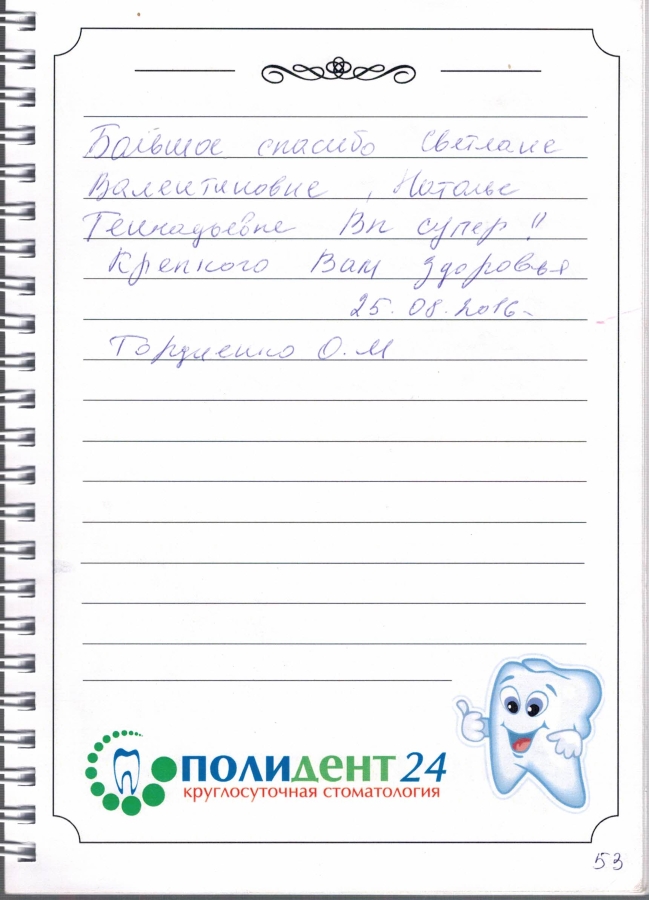 Большое спасибо Светлане
Валентиновне, Наталье
Геннадьевне Вы супер!!
Крепкого Вам здоровья
25.08.2016
О.М
ПОЛИДЕНТ 24
круглосуточная стоматология
53